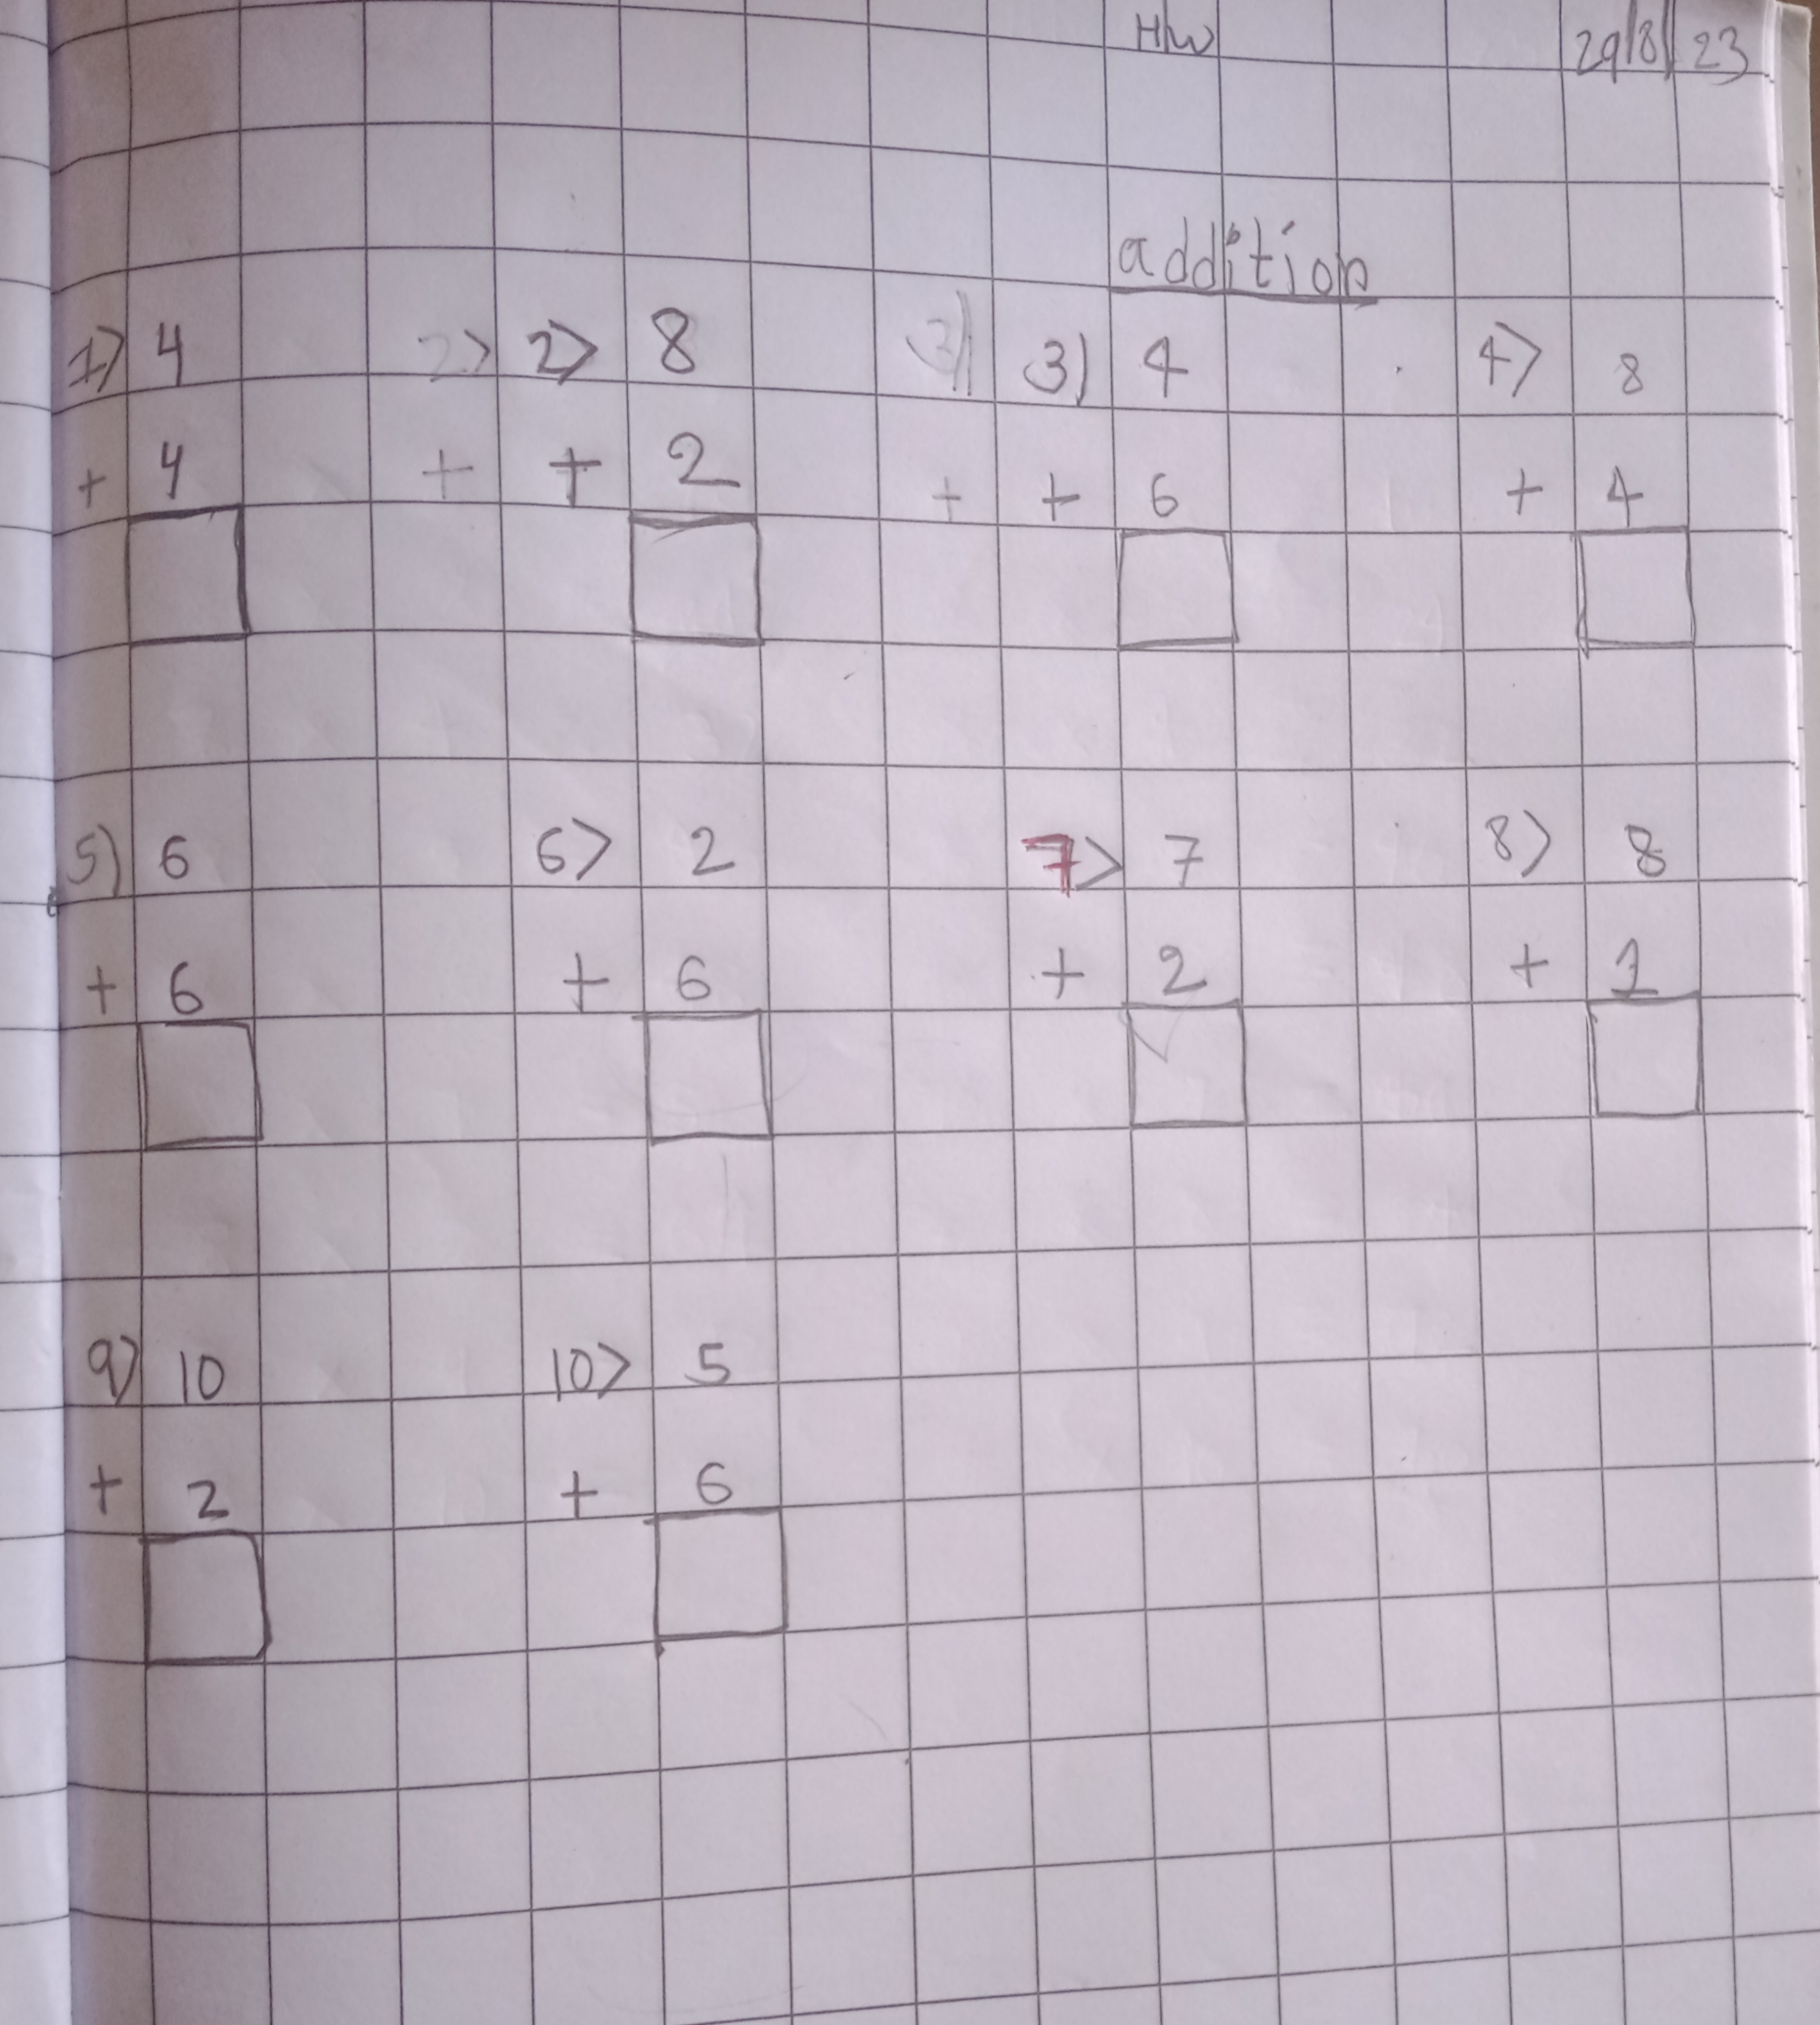 H/W 29/8/23
addition
1) 4 2> 2> 8 3) 3) 4 4> 8
+ 4 + + 2 + + 6 + 4
5) 6 6> 2 7> 7 8> 8
+ 6 + 6 + 2 + 1
9) 10 10> 5
+ 2 + 6